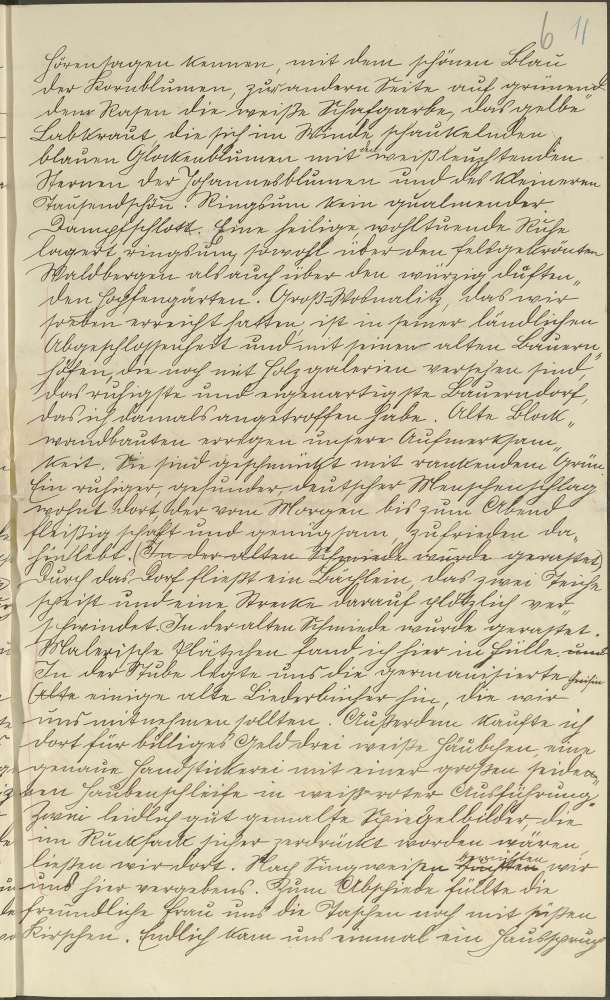 6 11
Hörensagen kennen, mit dem schönen Blau
der Kornblumen, zur andern Seite auf grünend
dem Rasen die weiße Schafgarbe, das gelbe
Labkraut die sich im Winde schaukelnden
blauen Glockenblumen mit den weißleuchtenden
Sternen der Johannesblumen und des kleineren
Tausendschön. Ringsum kein qualmender
Dampfschlott. Eine heilige, wohltuende Ruhe
lagert ringsum, sowohl über den felsgekrönten
Waldbergen als auch über den würzig duften„
den Hopfengärten. Groß-Wosnalitz, das wir
soeben erreicht hatten, ist in seiner ländlichen
Abgeschlossenheit und mit seinen alten Bauern„
höfen, die noch mit Holzgalerien versehen sind,
das ruhigste und eigenartigste Bauerndorf,
das ich damals angetroffen habe. Alte Block„
wandbauten erregen unsere Aufmerksam„
keit. Sie sind geschmückt mit rankendem Grün
Ein ruhiger, gesunder, deutscher Menschenschlag
wohnt dort der vom Morgen bis zum Abend
fleißig schafft und genügsam, zufrieden da„
hinlebt. (In der alten Schmiede wurde gerastet)
Durch das Dorf fließt ein Bächlein, das zwei Teiche
speist und eine Strecke darauf plötzlich ver„
schwindet. In der alten Schmiede wurde gerastet.
Malerische Plätzchen fand ich hier in Hülle und
In der Stube legte uns die germanisierte
(Alte einige alte Liederbücher hin, die wir
uns mitnehmen sollten. Außerdem kaufte ich
dort für billiges Geld drei weiße Häubchen, eine
genaue Handstickerei mit einer großen seiden„
en Haubenschleife in weiß-roter Ausführung.
Zwei leidlich gut gemalte Spiegelbilder, die
im Rucksack sicher zerdrückt worden wären,
ließen wir dort. Nach Singweisen bemühten wir
uns hier vergebens. Zum Abschiede füllte die
freundliche Frau uns die Taschen noch mit süßen
Kirschen. Endlich kam uns einmal ein Hausspruch